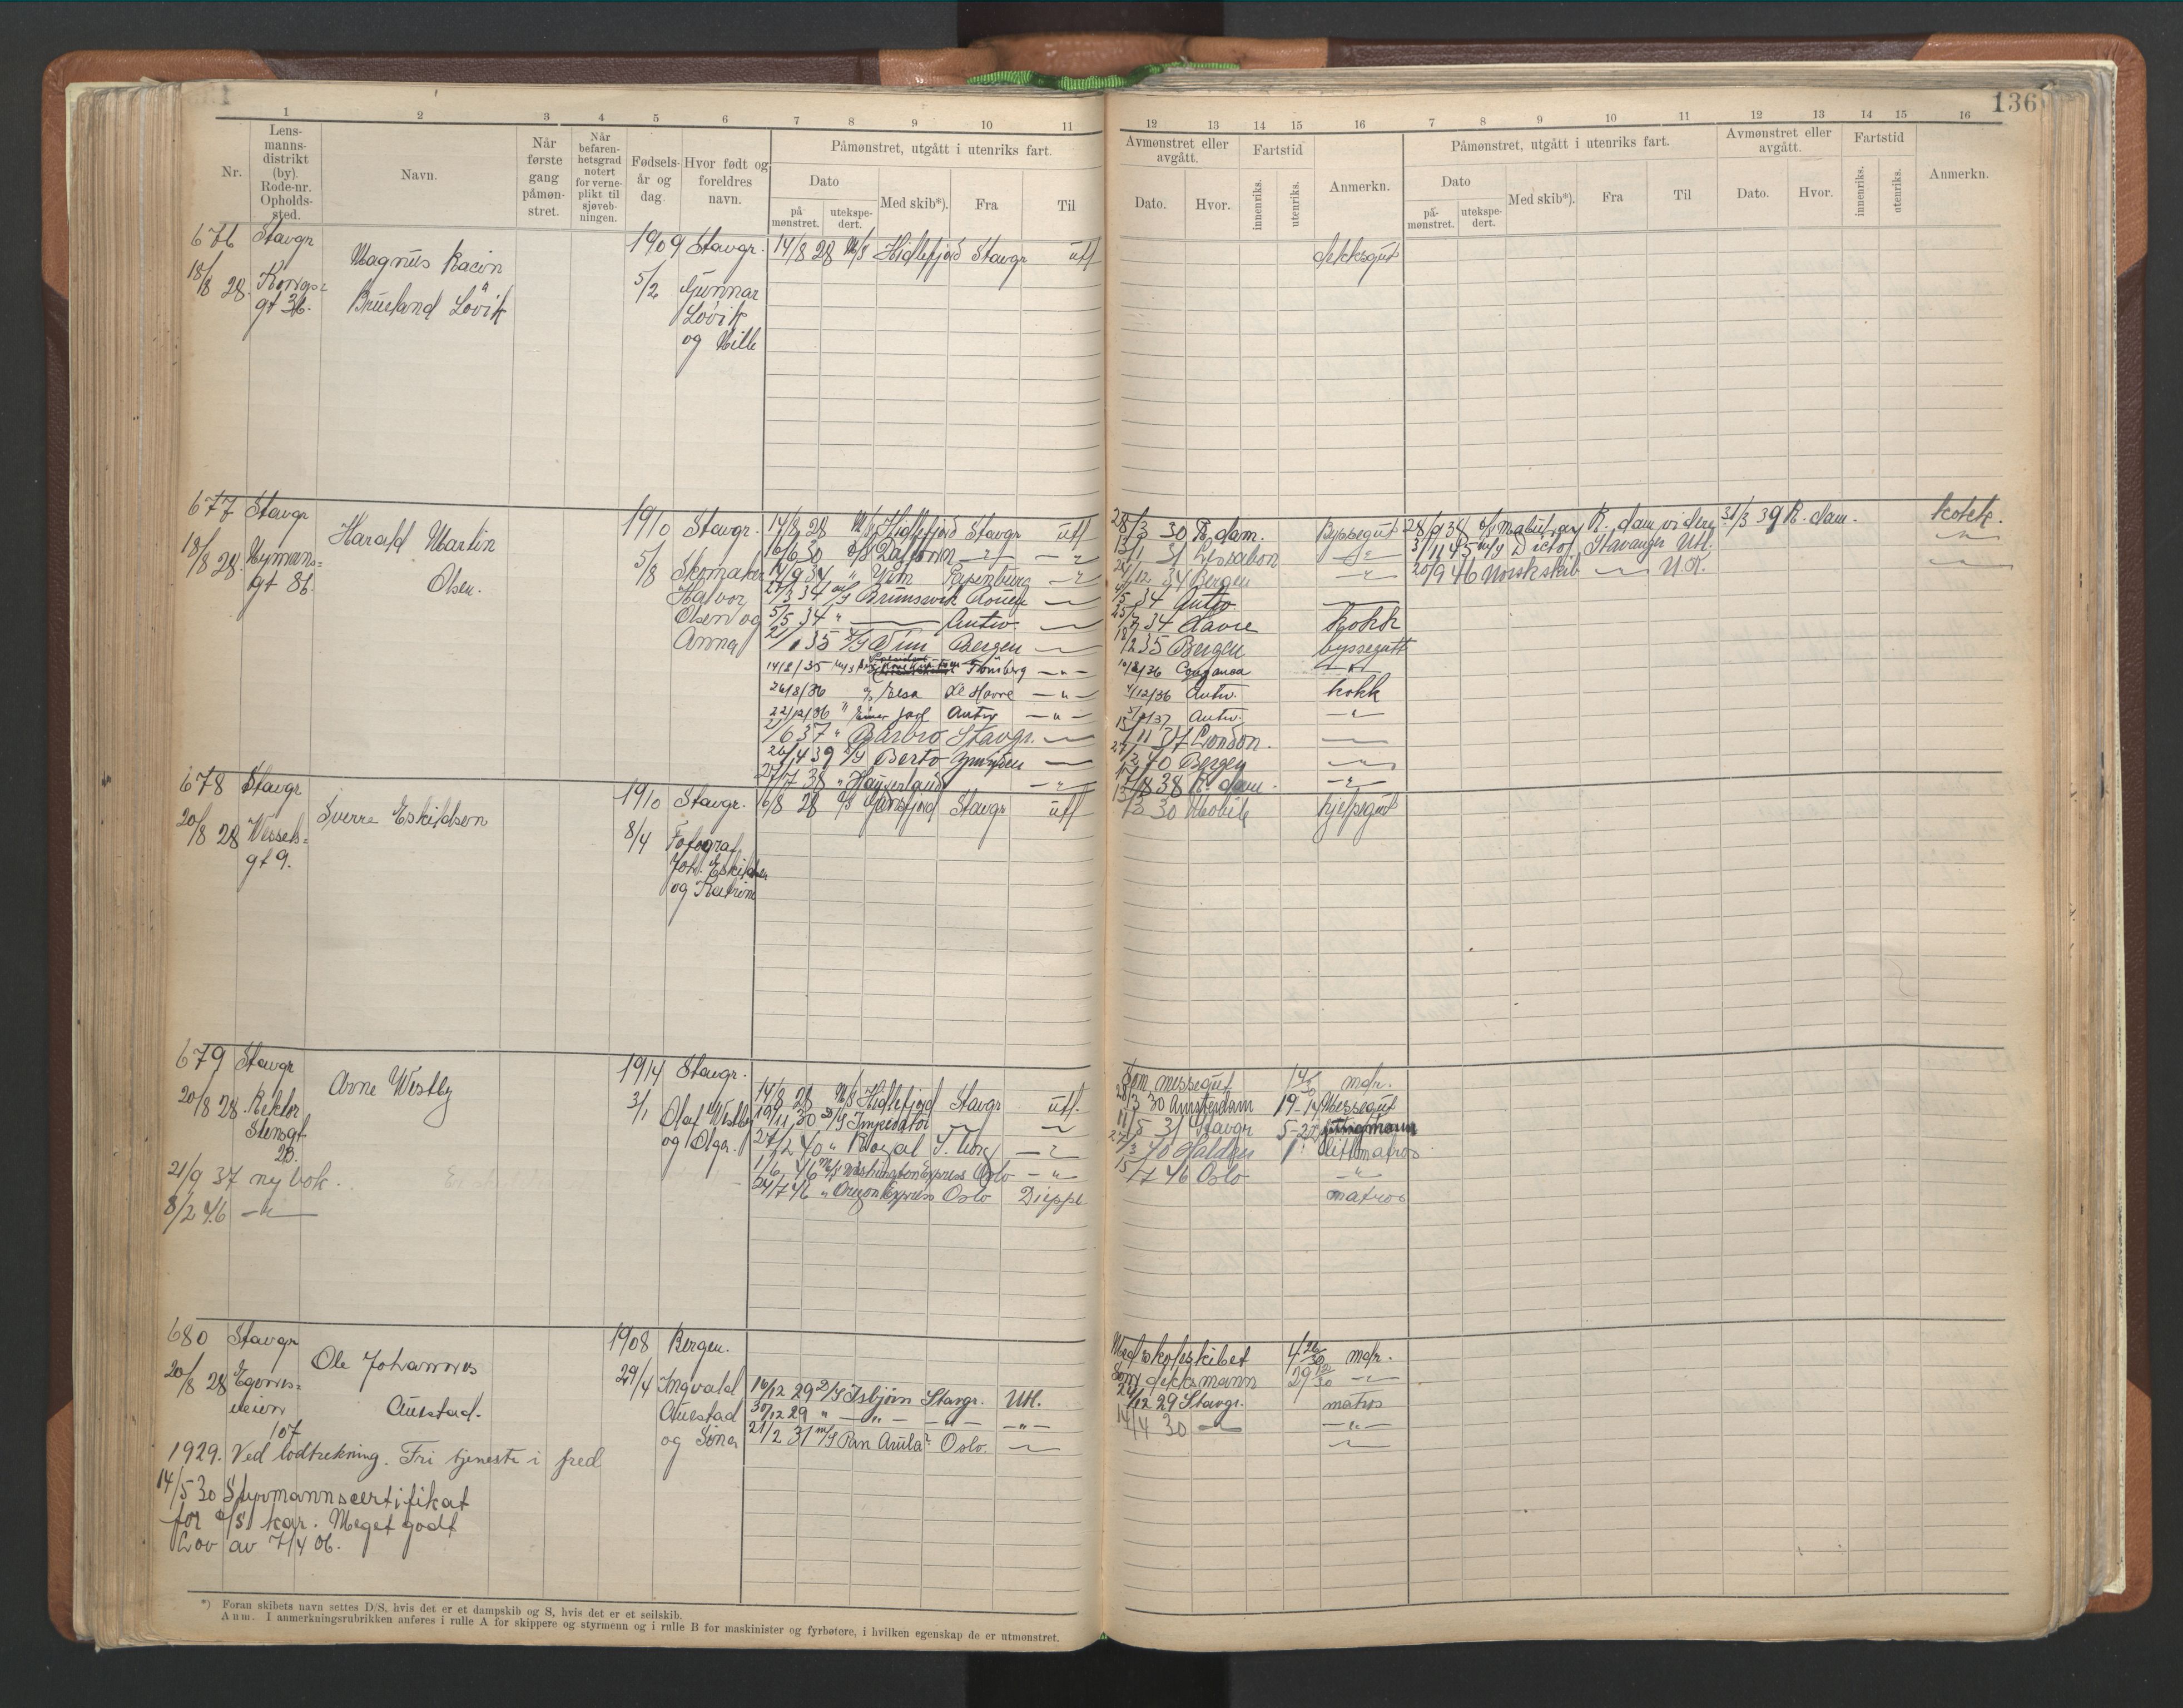 136
1 2 3 4 5 6 7 8 9 10 11
12 13 14 15 16 7 8 9 10 11 12 13 14 15 16
Nr.
Lens-
manns-
distrikt
(by).
Rode-nr.
Opholds-
sted.
Navn.
Når
første
gang
påmøn-
stret.
Når
befaren-
hetsgrad
notert
for verne-
plikt til
sjøveb-
ningen.
Fødsels-
år og
dag.
Hvor født og
foreldres
navn.
Påmønstret, utgått i utenriks fart.
Dato
på-
mønstret.
utekspe-
dert.
Med skib*).
Fra
Til
Avmønstret eller
avgått.
Dato.
Hvor.
Fartstid
innenriks.
utenriks.
Anmerkn.
Påmønstret, utgått i utenriks fart.
Dato
på-
mønstret.
utekspe-
dert.
Med skib*).
Fra
Til
Avmønstret eller
avgått.
Dato.
Hvor.
Fartstid
innenriks.
utenriks.
Anmerkn.
676 Stavgr
18/8 28. Kongs-
gt 36.
Magnus
Brueland Løvik
1909
5/2
Stavgr.
Gunnar
Løvik
og Mille
14/8 28 M/S Hidlefjord Stavgr utl dekksgut
677 Stavgr
18/8 28. Nymans-
gt 86.
Harald Martin
Olsen.
1910
5/8
Stavgr.
Skomaker
Halvor
Olsen og
Anna
14/8 28 M/S Hidlefjord Stavgr utl 28/3 30 R.dam. Byssegut
16/6 30 — " — — " — 13/1 31 — " —
14/9 34 " Papenburg — " — 24/12 34 Bergen — " —
/3 34 M/S Brunsvik Rouen — /5 34 Antw. —
5/5 34 " — Antw. — 25/7 34 Havre kokk
2/1 35 Bergen — 18/2 35 Bergen byssegutt
14/2/35 M/S Tønsberg — " —
26/8/36 Elsa Le Havre — " — /12/36 Antw. kokk
22/12/36 " Einar Jarl Antw — " — 37 Antw. — " —
/6 37 " Barbro Stavgr. — 15/11 37 London. —
20/4 39 Berto — 27/2 40 Bergen —
27/7 38 " Haugerland — " — 17/8 38 R.dam. — " —
28/9 38 R.dam videre 31/3 39 R.dam. kokk.
3/11 45 M/S Dicto Stavanger Utl. — " —
20/9 46 Norsk skib — U.K. — " —
678 Stavgr
20/8 28 Wessels-
gt 9.
Sverre Eskildsen
1910
8/4
Stavgr.
Fotograf
Joh. Eskildsen
og Katrine
6/8 28 Stavgr utl 13/3 30 Mobile hjelpegut
679 Stavgr
20/8 28. Rektor
Stensgt
28.
21/9 37 ny bok.
8/2 46 — " —
Arne Westby
1914
3/1
Stavgr.
Olaf Westby
og Olga.
Som messegut mdr.
14/8 28 M/S Hidlefjord Stavgr utl. 28/3 30 Amsterdam 19-14 Messegut
19/11 30 D/S Imperator — 11/5 31 Stavgr
27/2 40 " Royal — " — Halden
1/6 46 M/S Washington Express Oslo — " — 15/7 46 Oslo — " —
24/7 46 " Oregon Express Oslo Dieppe matros
680 Stavgr
20/8 28 Egenes-
veien
107
Ole Johannes
Auestad.
1908
29/4
Bergen.
Ingvald
Auestad
og Sina
Med skoleskibet mdr.
Som dekksmann — " —
16/12 29 D/S Isbjørn Stavgr. Utl. 24/12 29 Stavgr. matros
30/12 29 " — " — — " — — " — 14/4 30 — " — — " —
21/2 31 M/S Pan Aruba Oslo. — —
1929. Ved lodtrekning. Fri tjeneste i fred
14/5 30 Styrmannscertifikat
for kar. Meget godt
Lov av 7/4 06.
*) Foran skibets navn settes D/S, hvis det er et dampskib og S, hvis det er et seilskib.
Anm. I anmerkningsrubrikken anføres i rulle A for skippere og styrmenn og i rulle B for maskinister og fyrbøtere, i hvilken egenskap de er utmønstret.